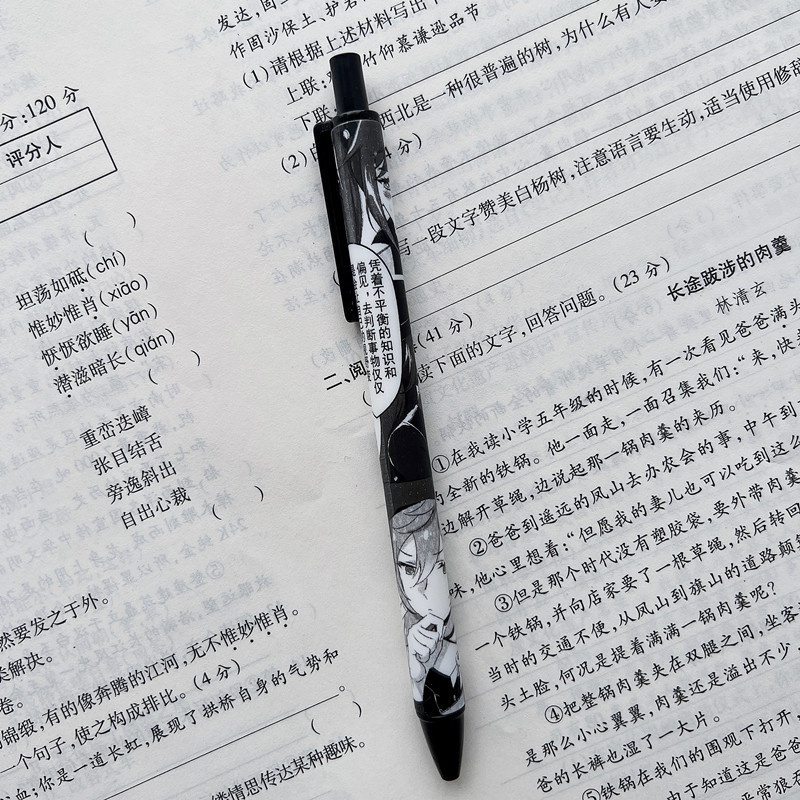 分:120 分
评分人
(    )
坦荡如砥(chí)
惟妙惟肖(xiāo)
恹恹欲睡(yān)
潜滋暗长(qián)
(    )
重峦迭嶂
张目结舌
旁逸斜出
自出心裁
(    )
然要发之于外。
类解决。
卷。
的锦缎,有的像奔腾的江河,无不惟妙惟肖。
一个句子,使之构成排比。(4 分)
血;你是一道长虹,展现了拱桥自身的气势和
。
(    )
情思传达某种趣味。
发达,固
作固沙保土、护
(1)请根据上述材料写出下
上联:
竹仰慕谦逊品节
下联
西北是一种很普遍的树,为什么有人
(2)
分)
写一段文字赞美白杨树,注意语言要生动,适当使用修辞
凭着不平衡的知识和
偏见,去判断事物仅仅
二、阅
(41 分)
读下面的文字,回答问题。(23 分)
长途跋涉的肉羹
林清玄
①在我读小学五年级的时候,有一次看见爸爸满头
的全新的铁锅。他一面走,一面召集我们:“来,快
边解开草绳,边说起那一锅肉羹的来历。
②爸爸到遥远的凤山去办农会的事,中午到
味,他心里想着:“但愿我的妻儿也可以吃到这么
③但是那个时代没有塑胶袋,要外带肉羹
一个铁锅,并向店家要了一根草绳,然后转回
当时的交通不便,从凤山到旗山的道路颠
头土脸,何况是提着满满一锅肉羹呢?
④把整锅肉羹夹在双腿之间,坐客
是那么小心翼翼,肉羹还是溢出不少,
爸的长裤也湿了一大片。
⑤铁锅在我们的围观下打开,
由于知道这是爸爸